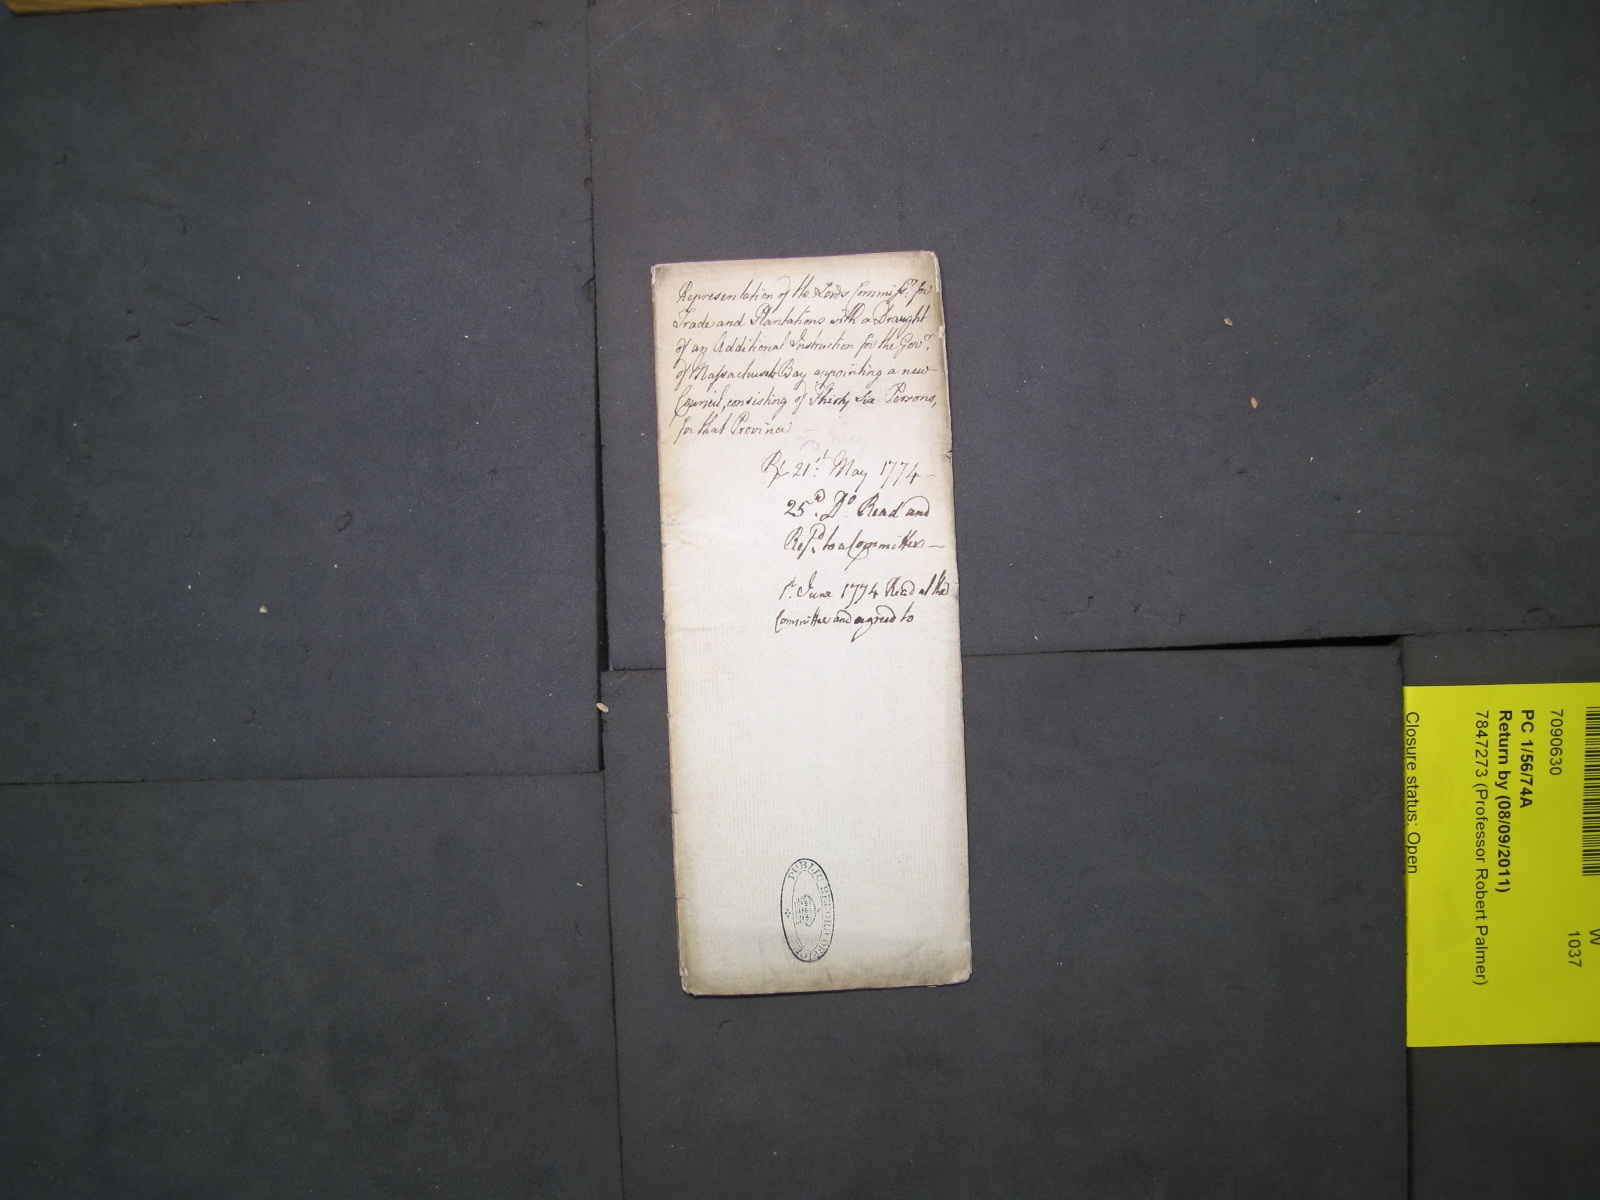 Representation of the Lords Commissrs. for
Trade and Plantations with a Draught
of an Additional Instruction for the Govr.
of Massachusets Bay appointing a new
Council, consisting of Thirty Six Persons,
for that Province —
21st. May 1774 —
25th. Do. Read and
Refd. to a Committee —
1st. June 1774 Read at the
Committee and agreed to
PUBLIC RECORD OFFICE
W
1037
7090630
PC 1/56/74A
Return by (08/09/2011)
7847273 (Professor Robert Palmer)
Closure status: Open